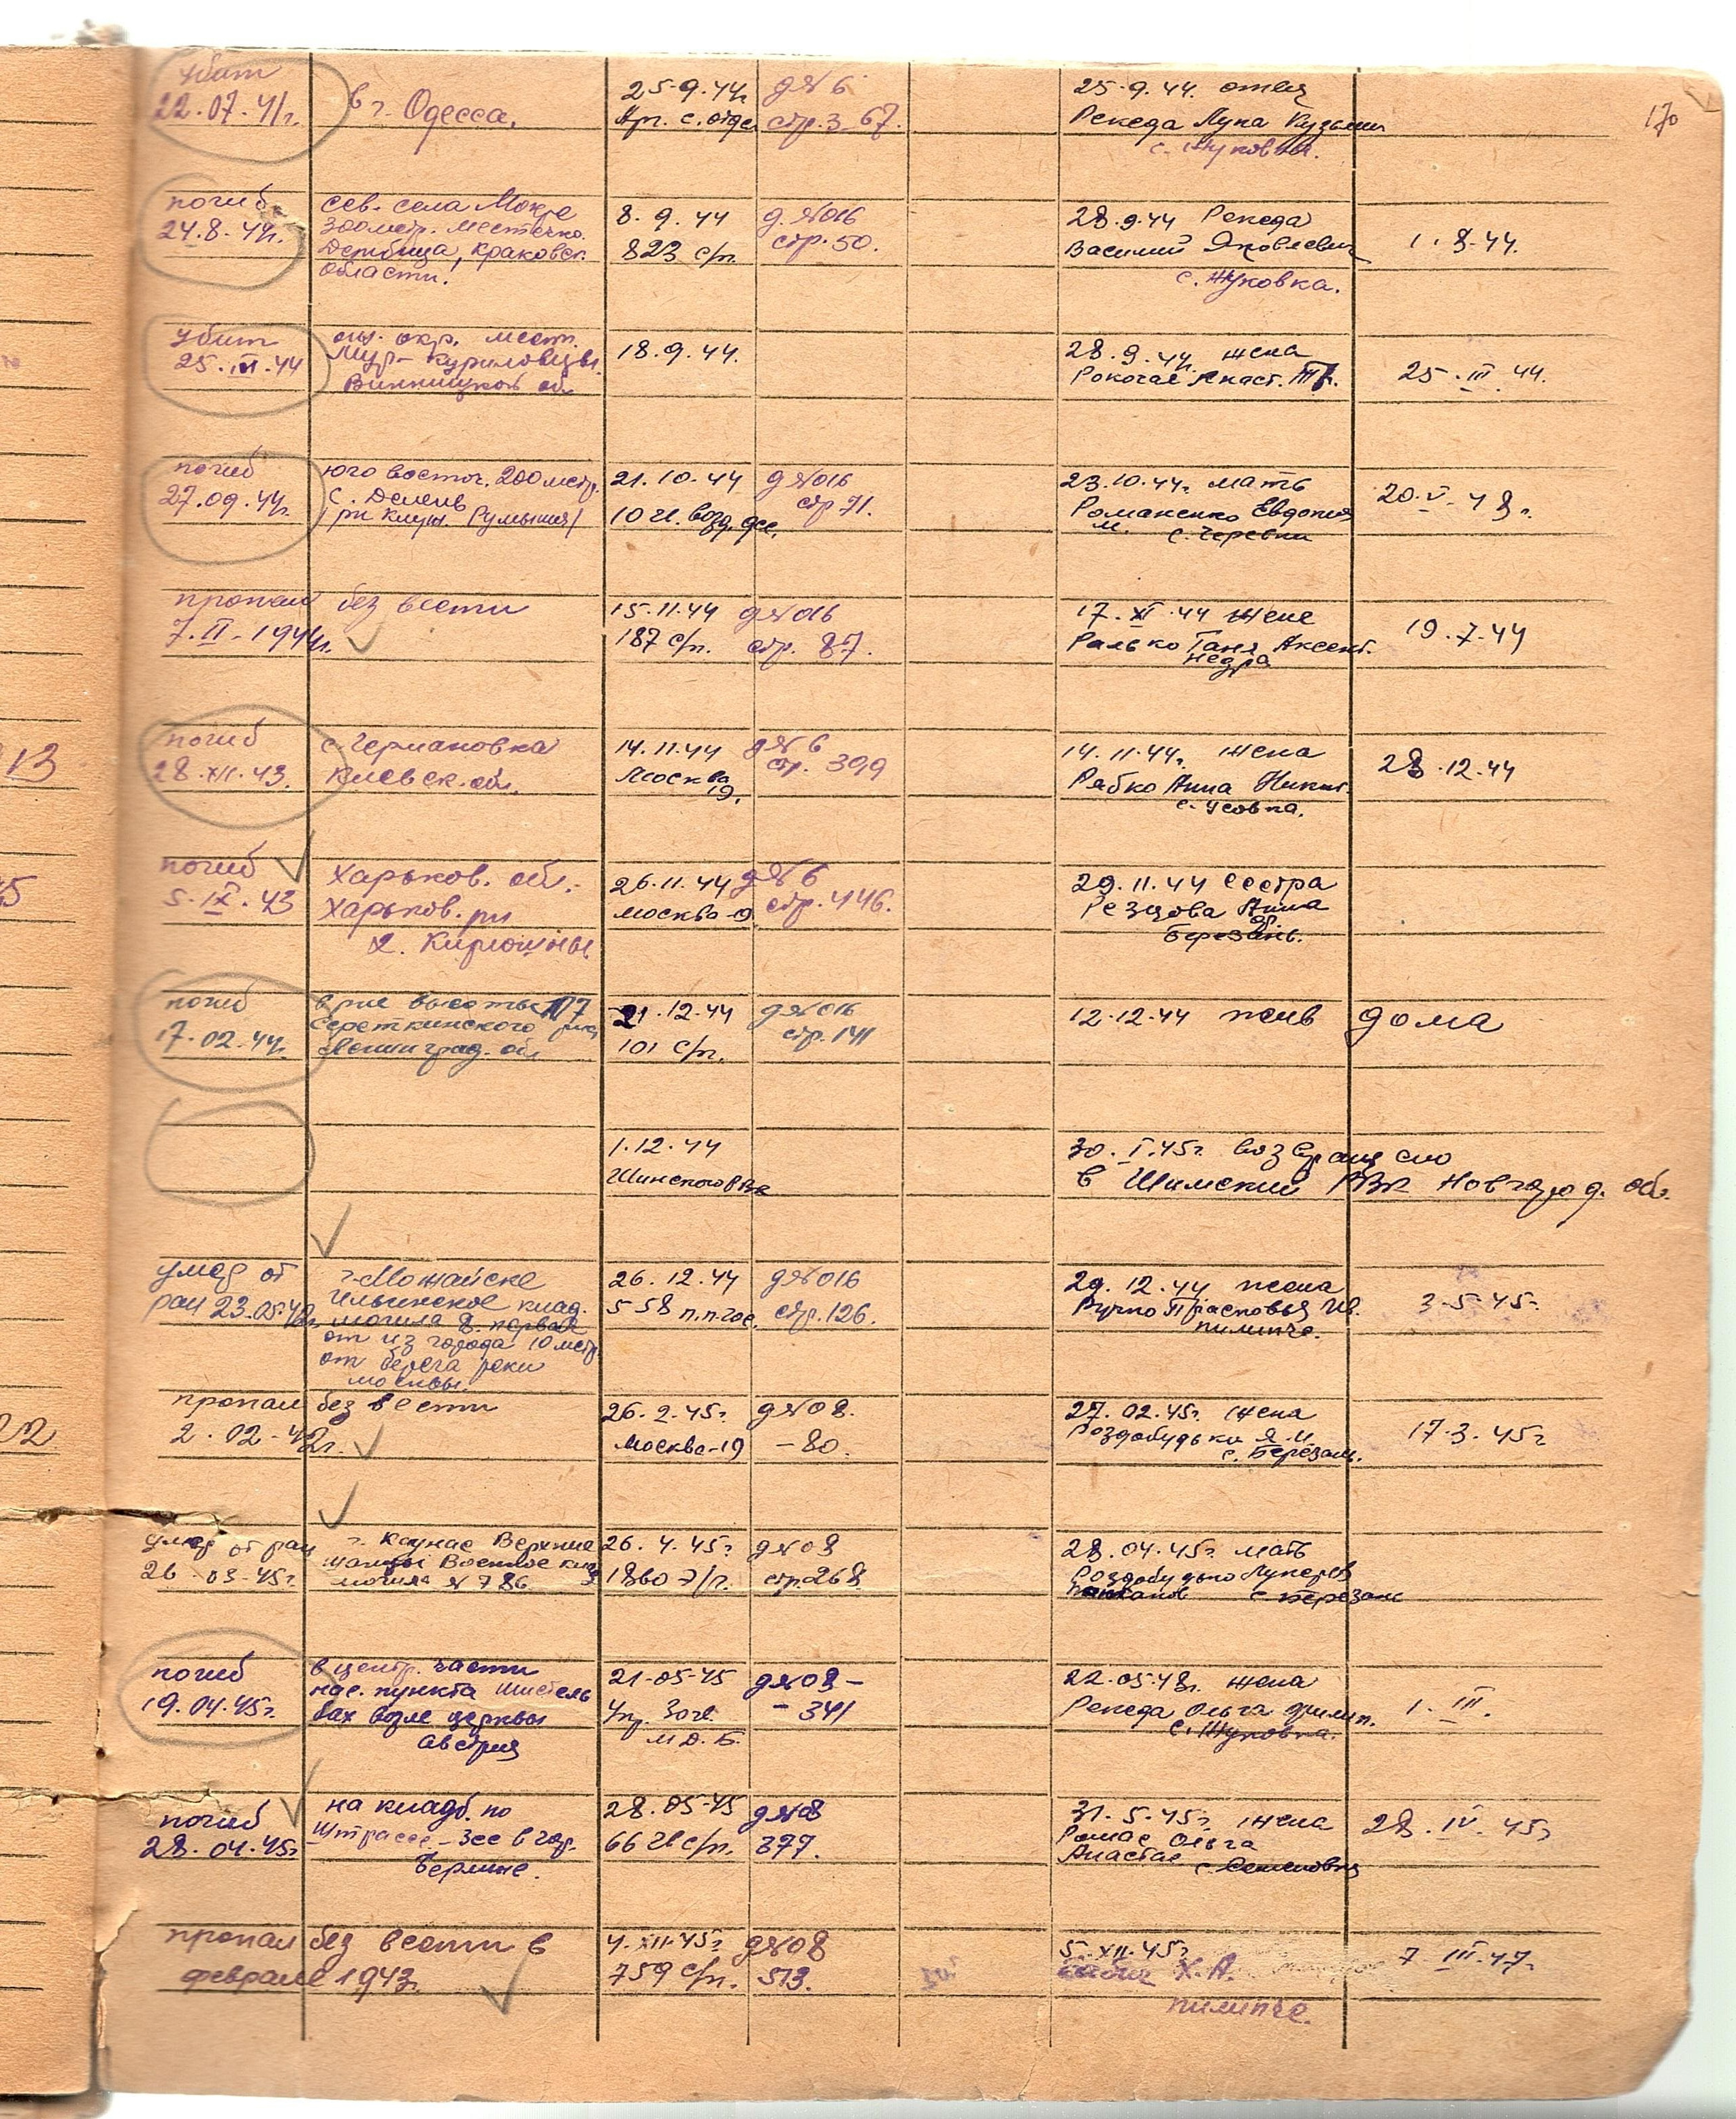 170
убит
22.07.41г.
в г. Одесса.
25.9.44г
Арт. с. отде
д№6
стр.3-67.
25.9.44. отец
Рекеда Лука Кузьмич
с. Жуковка.
погиб
24.8.44г.
сев. села Мокре
300метр. местечко.
Дембица, Краковск.
области.
8.9.44
823 с/п.
д.№016
стр.50.
28.9.44 Рекеда
Василий Яковлевич
с. Жуковка.
1.8.44.
убит
25.III.44
окр. мест.
Мур-Куриловцы.
Винницкой об.
18.9.44.
28.9.44г. жена
25.III.44.
погиб
27.09.44г.
юго восточ. 200метр.
с. Делень
рн Клуж. Румыния/
21.10.44
д№016
стр 71.
23.10.44г. мать
Романенко Евдокия
М. с. Черевки
20.V.48г.
пропал без вести
7.II.1944г.
15.11.44
187 с/п.
д№016
стр. 87.
17.XI.44 жене
Ралько Таня Аксент.
Недра
19.7.44
13
погиб
28.XII.43.
с. Германовка
Киевск. обл.
14.11.44
Москва
19.
д№6
стр. 399
14.11.44г. жена
Рябко Анна Никит.
с. Усовка.
28.12.44
погиб
5.IX.43
Харьков. обл.
Харьков. рн
х. Кирюшины
26.11.44
Москва-19
д№6
стр.446.
29.11.44 сестра
Резцова Анна
Березань.
погиб
17.02.44г.
в рне высоты 177
Середкинского рна
Ленинград. обл
21.12.44
101 с/п.
д№016
стр.141
12.12.44 жив дома
1.12.44
Шимского РВК
30.I.45г. возвращено
в Шимский РВК Новгород. об.
умер от
ран 23.05.42г.
г. Можайске
Ильинское клад.
могила 8. первая
от из города 10 метр.
от берега реки
Москвы.
26.12.44
558 п.п.гос.
д№016
стр.126.
29.12.44 жена
Ручко Прасковья Ив.
Пилипче.
3.5.45.
22
пропал без вести
2.02.42г.
26.2.45г.
Москва-19
д№08.
-80.
27.02.45г. жена
Роздобудько Я.И.
с. Березань.
17.3.45г
умер от ран
26.03.45г.
г. Каунас Верхние
Шанцы Военное клад
могила №786
26.4.45г
1860 Э/г.
д№08
стр.268
28.04.45г. мать
Роздобудько Лукерья
с. Березань
погиб
19.04.45г.
в центр. части
нас. пункта Мистель
бах возле церквы
Австрия
21-05-45
Упр. 30 гв.
М.Д.Б.
д№08-
-341
22.05.48г. жена
Рекеда Ольга Филип.
с. Жуковка.
1.III.
погиб
28.04.45г
на кладб. по
Штрассе-зее в гор.
Берлине.
28.05-45
66 гв с/п.
д№08
377.
31.5.45г. жена
Ромас Ольга
Анастас. с. Семеновка
28.IV.45г
пропал без вести в
феврале 1943г.
4.XII.45г
759 с/п.
д№08
513.
5.XII.45г.
Х.А.
Пилипче.
7.III.47.